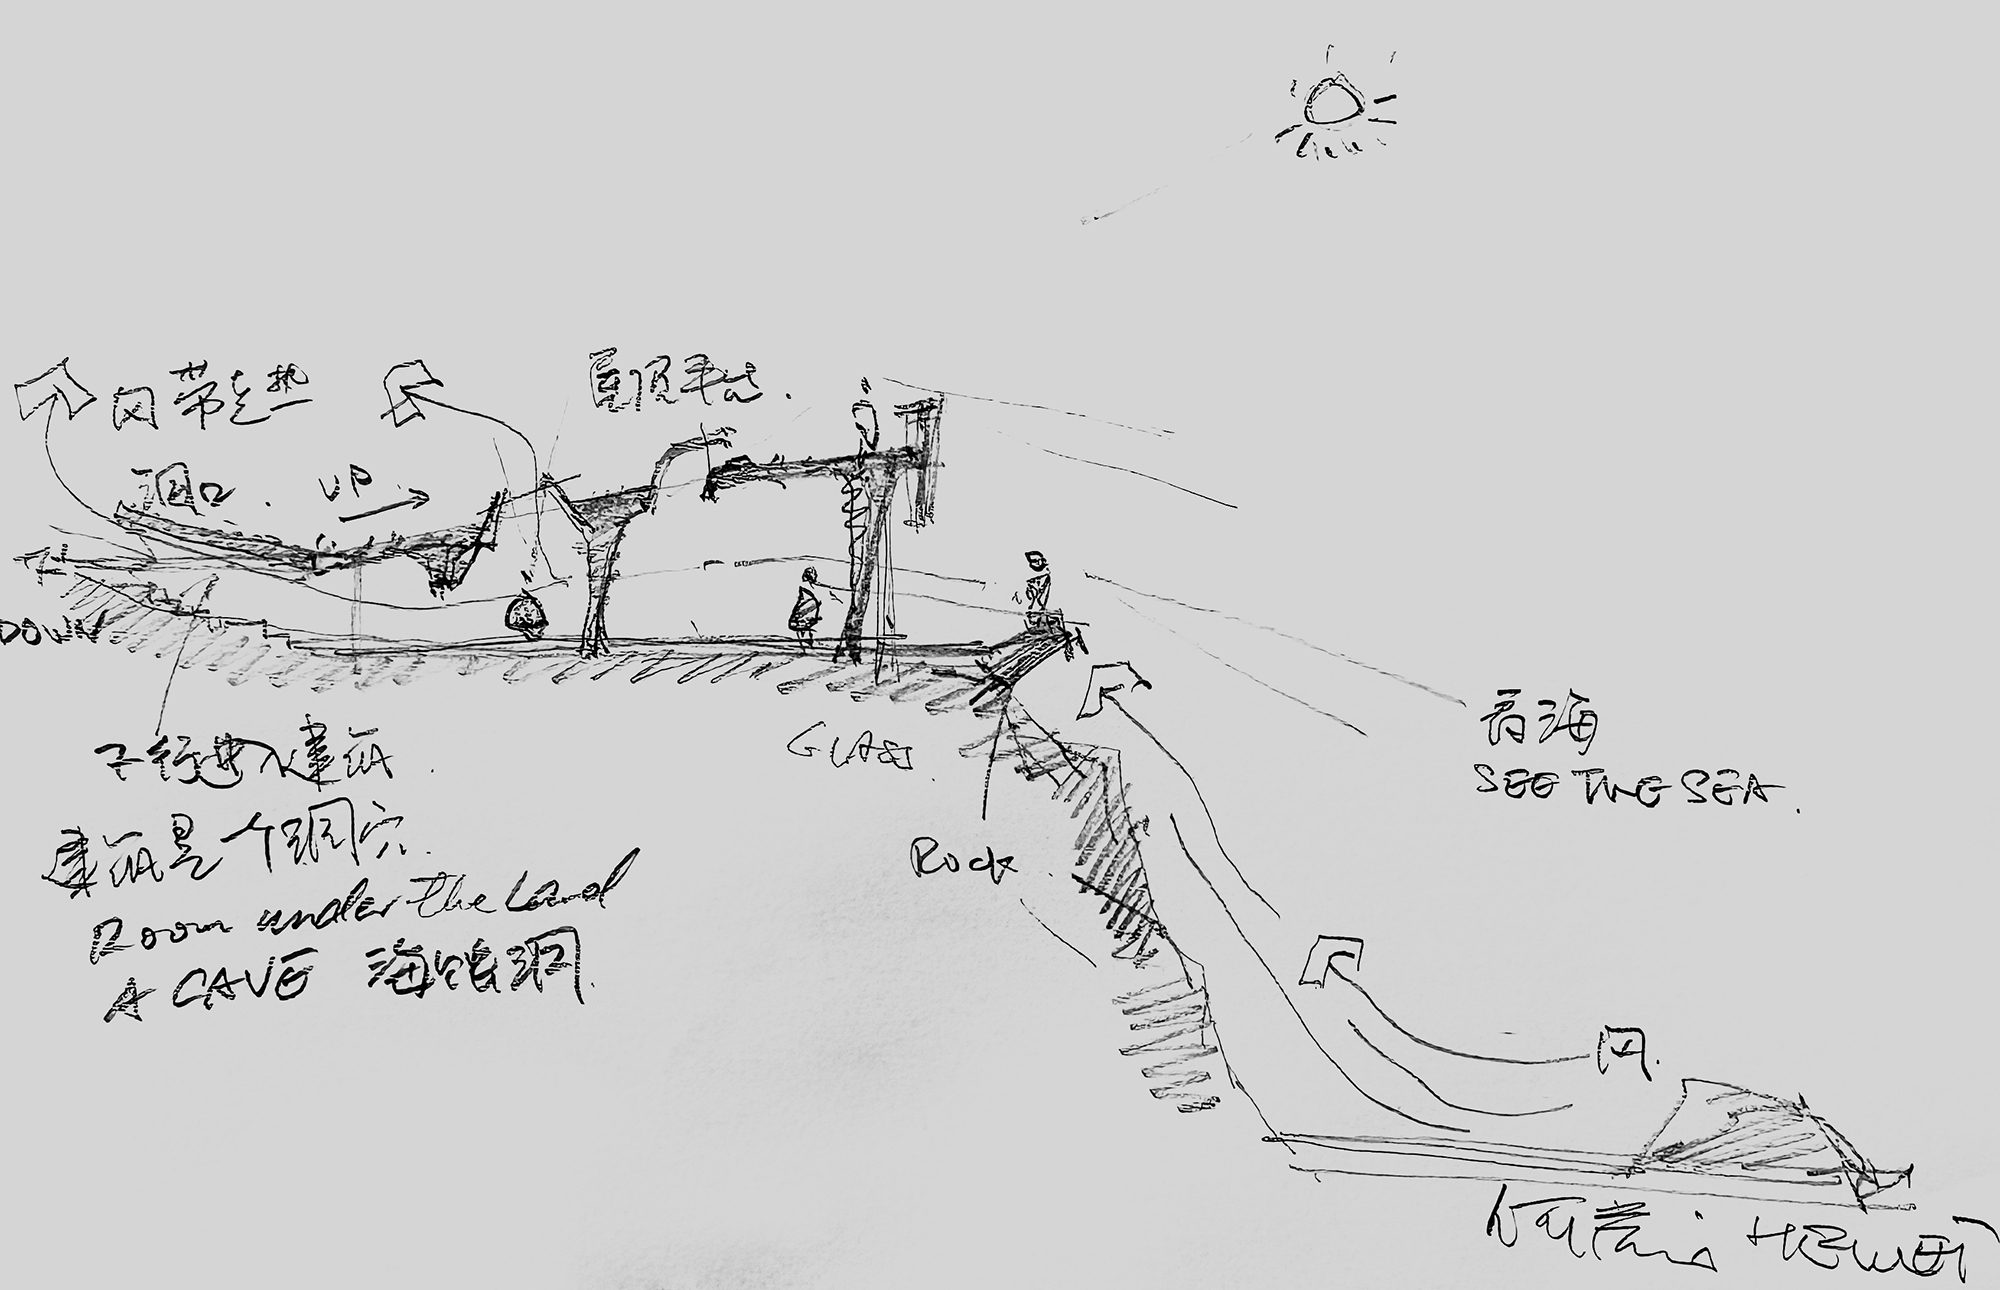 风带走热
屋顶平台.
洞口.
UP
下
DOWN
下行进入建筑.
GLASS.
看海
SEE THE SEA.
建筑是个洞穴.
Rock.
Room under the Land
A CAVE 海蚀洞.
风.